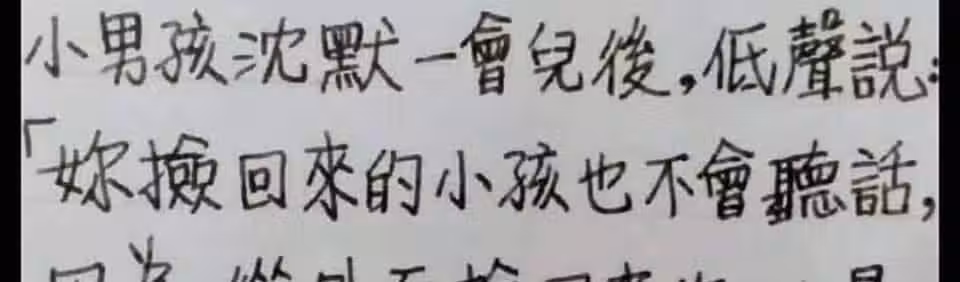 小男孩沈默一會兒後,低聲說:
「妳撿回來的小孩也不會聽話,